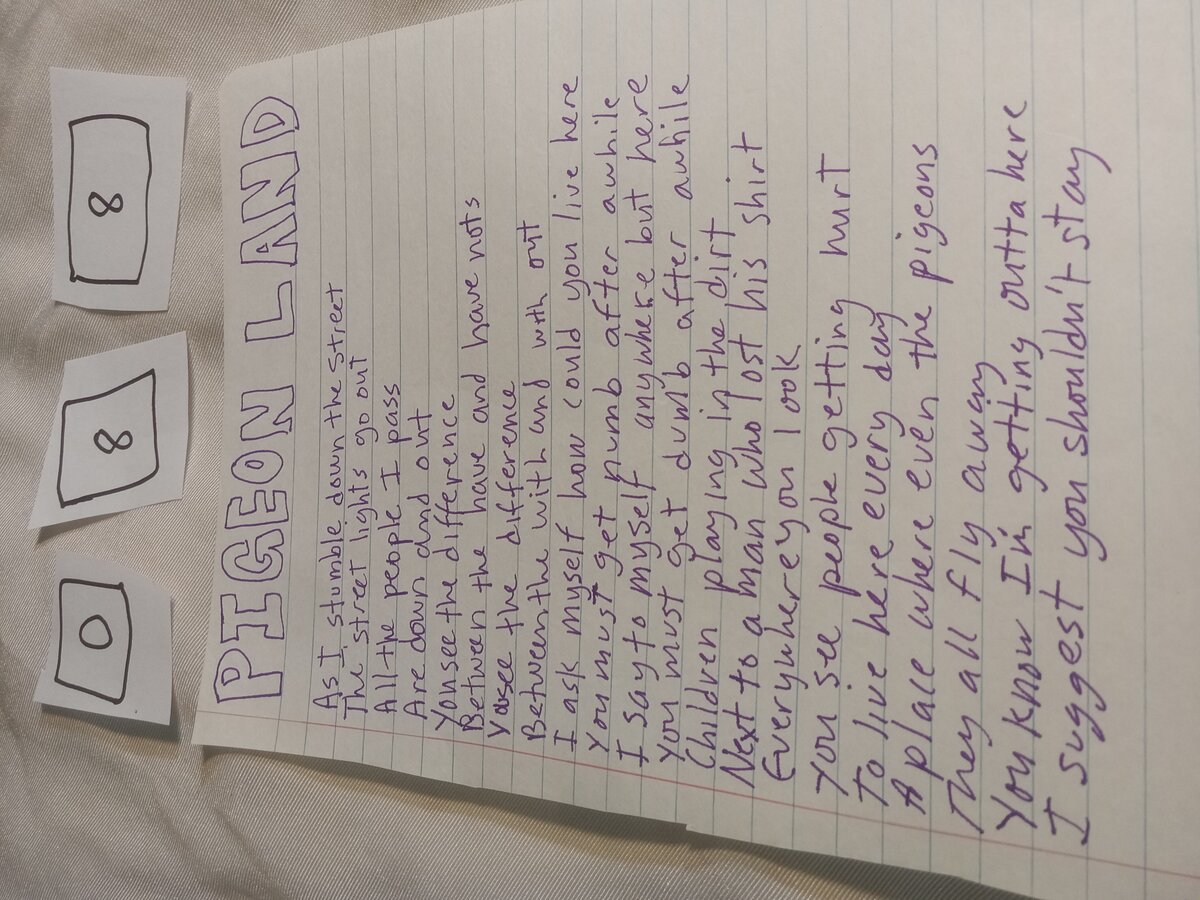 0
8
8
PIGEON LAND
As I stumble down the street
The street lights go out
All the people I pass
Are down and out
You see the difference
Between the have and have nots
You see the difference
Between the with and with out
I ask myself how could you live here
You must get numb after awhile
I say to myself anywhere but here
You must get dumb after awhile
Children playing in the dirt
Next to a man who lost his shirt
Everywhere you look
You see people getting hurt
To live here every day
A place where even the pigeons
They all fly away
You know I'm getting outta here
I suggest you shouldn't stay